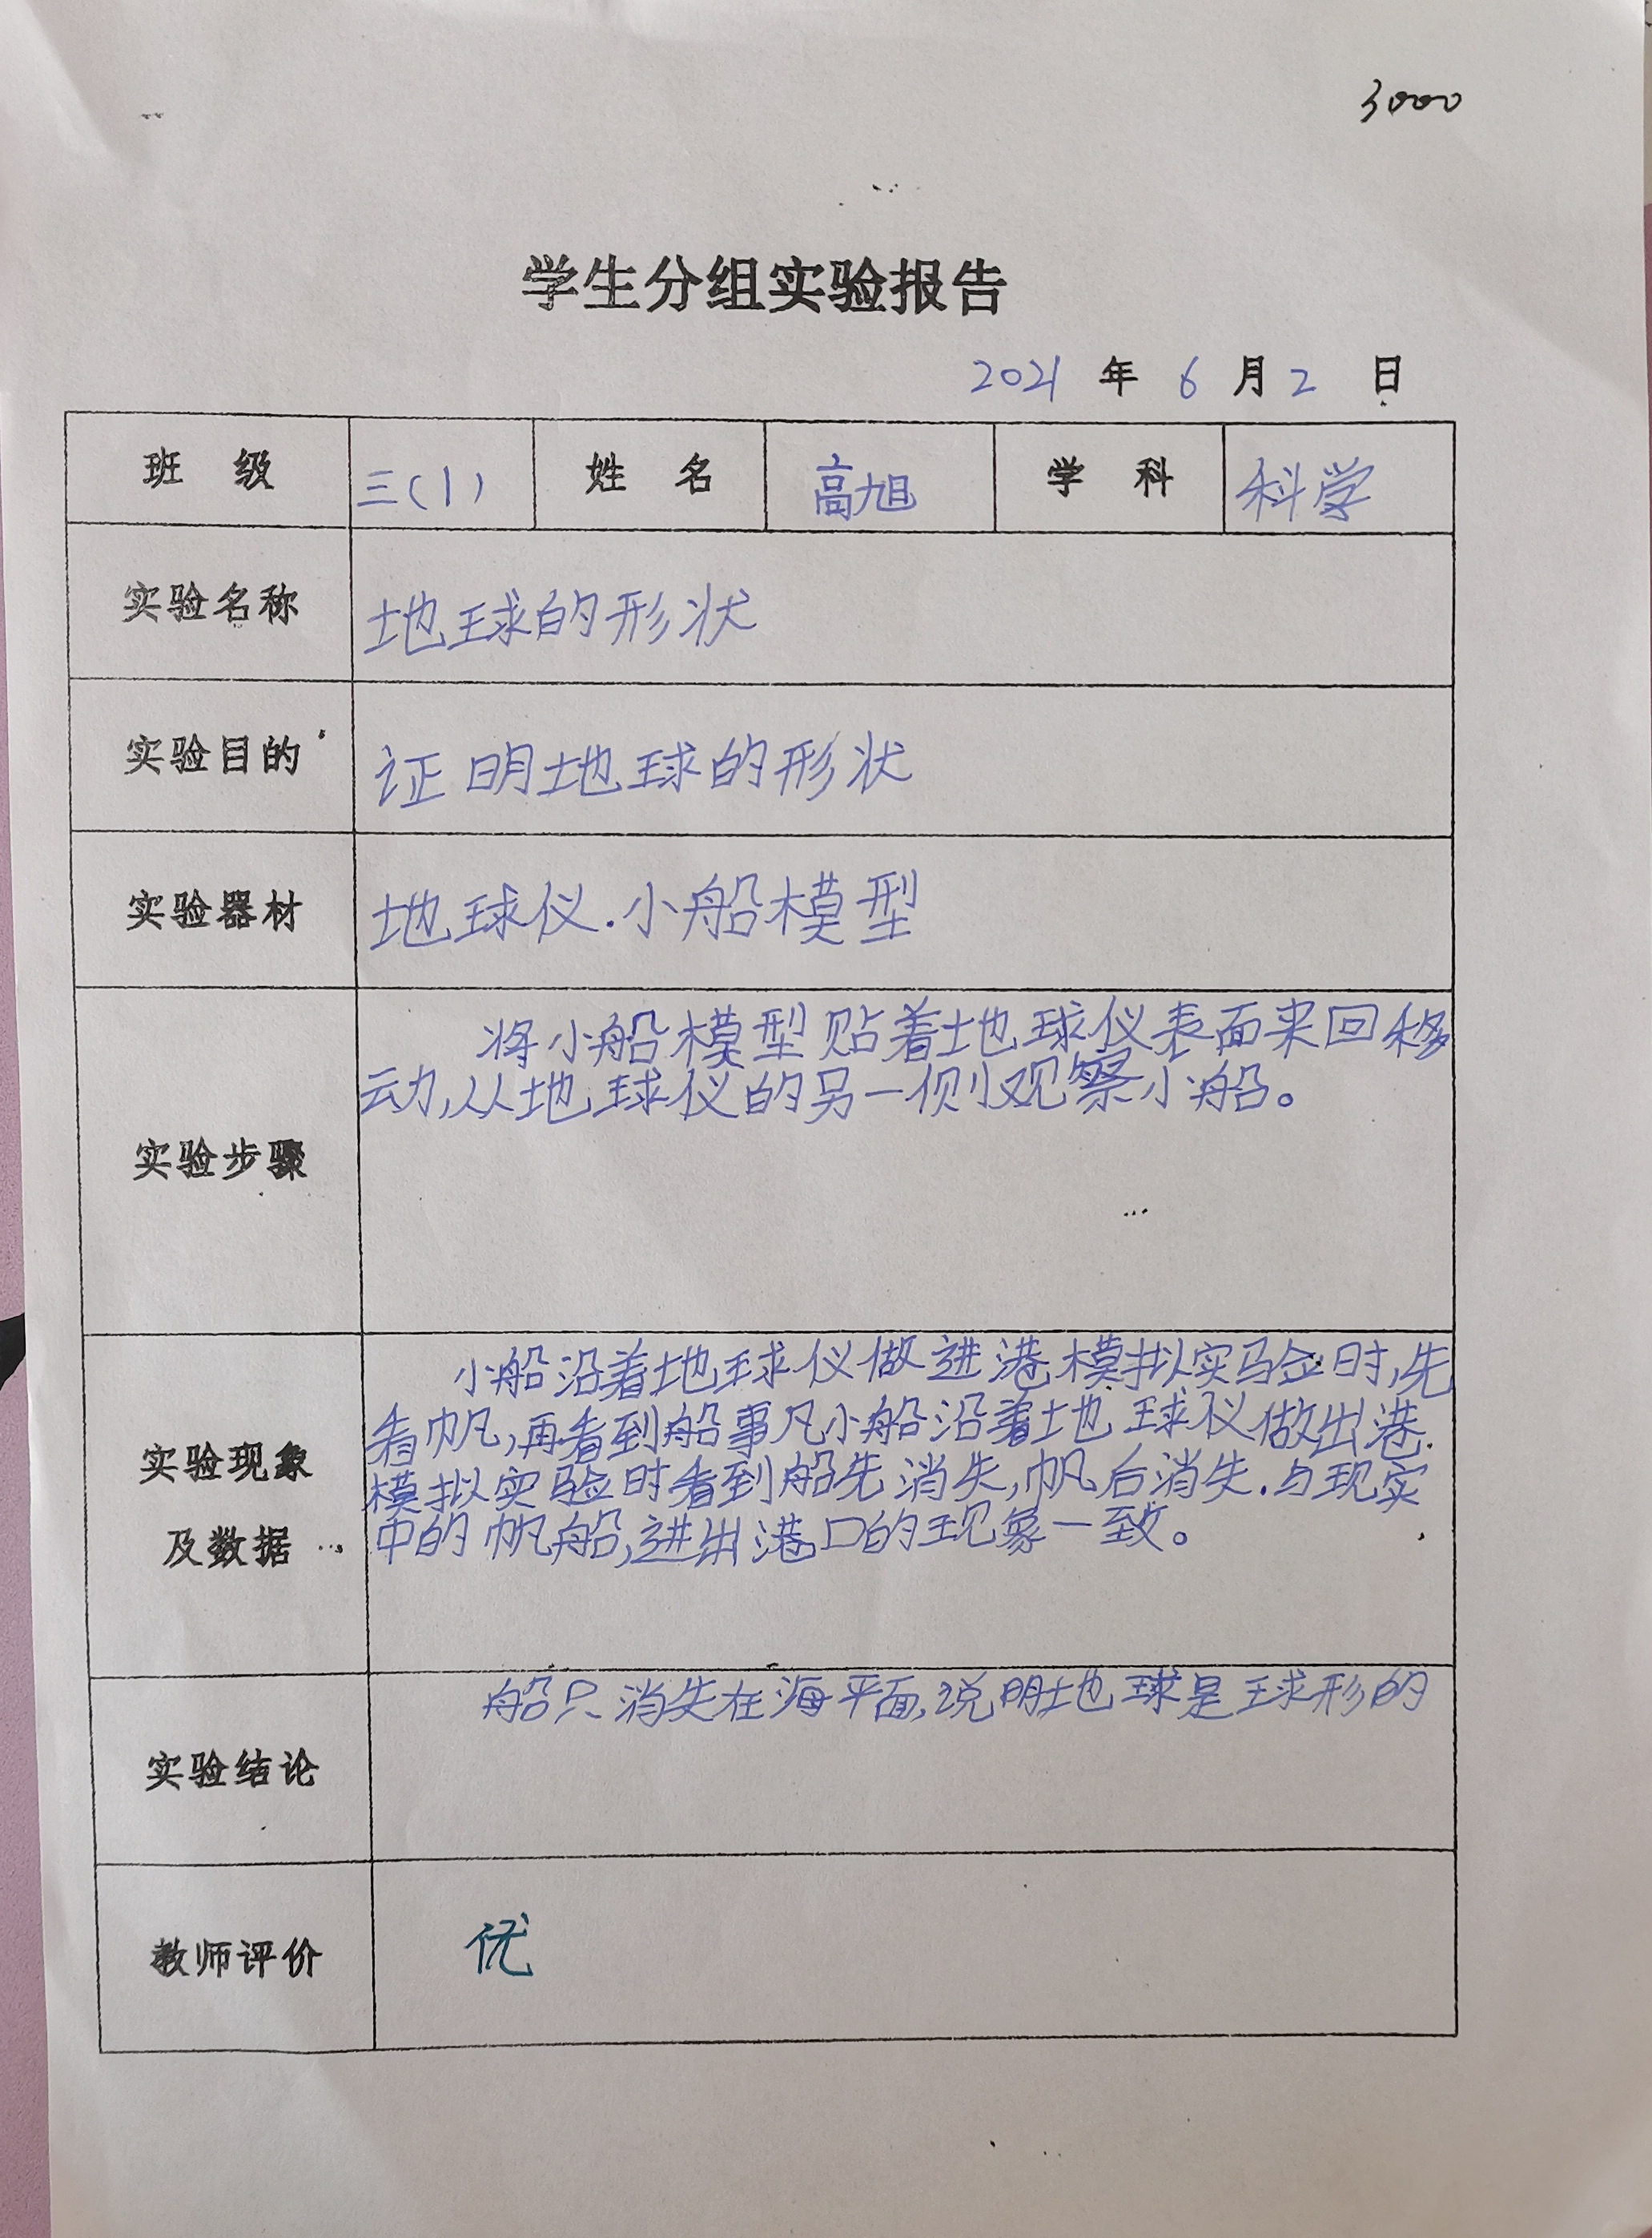 3000
学生分组实验报告
2021 年 6 月 2 日
班 级 三(1) 姓 名 高旭 学 科 科学
实验名称 地球的形状
实验目的 证明地球的形状
实验器材 地球仪.小船模型
实验步骤
将小船模型贴着地球仪表面来回移
动,从地球仪的另一侧观察小船。
实验现象
及数据
小船沿着地球仪做进港模拟实验时,先
看帆,再看到船事凡小船沿着地球仪做出港.
模拟实验时看到船先消失,帆后消失.与现实
中的帆船,进出港口的现象一致。
实验结论
船只消失在海平面,说明地球是球形的
教师评价 优